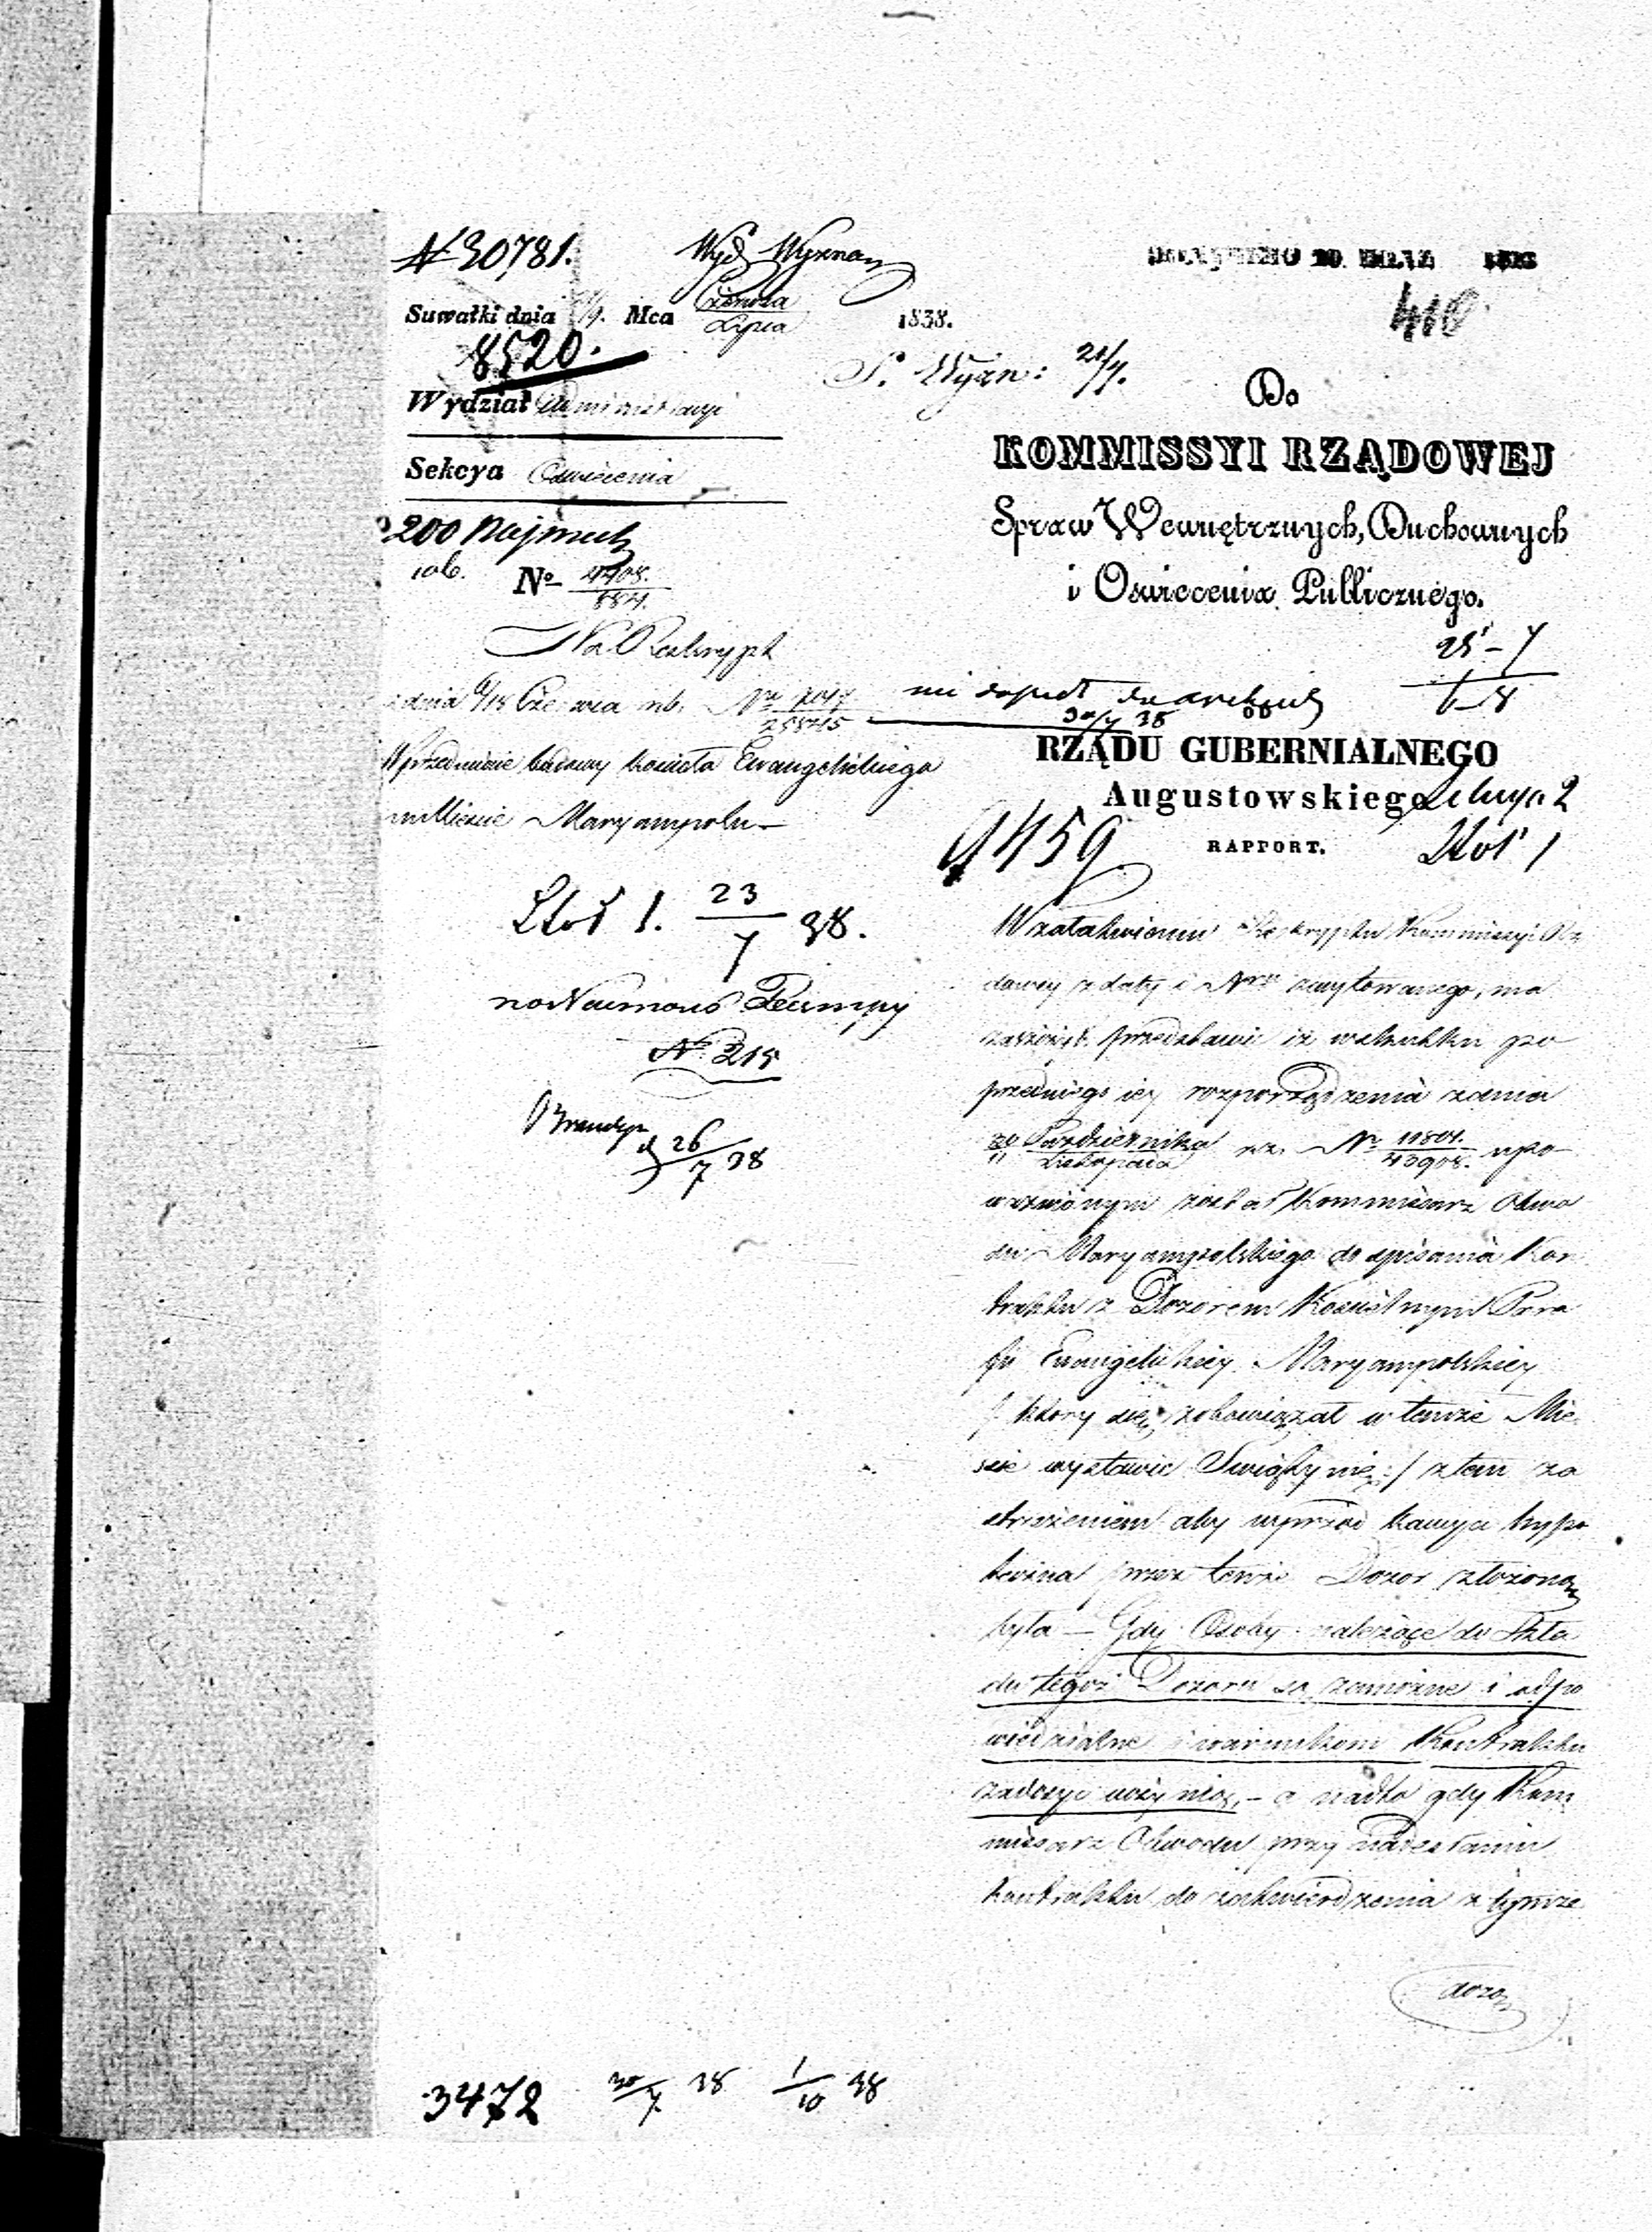 № 30781.
Wyd. Wyznań
Suwałki dnia /9. Mca Czerwca / Lipca 1838.
410
8520.
S. Wyzn: 21/7.
Wydział Administracyi
Do
KOMMISSYI RZĄDOWEJ
Sekcya Oświecenia
Spraw Wewnętrznych, Duchownych
i Oświecenia Publicznego.
200
No 4408. / 884.
Na Reskrypt
25 - 7
6 - 8
dnia 6/18 Czerwca rb. Nr / 25875
30/7 38
W przedmiocie budowy kościoła Ewangelickiego
w Mieście Maryampolu —
RZĄDU GUBERNIALNEGO
Augustowskiego
Sekcya 2
RAPPORT.
Stół 1
9459
Stół 1. 23/7 38.
No 215
26/7 38
W załatwieniu Reskryptu Kommissyi Rzą
dowey z daty i Nru zacytowanego, ma
zaszczyt przedstawić iż w skutku po
przedniego iey rozporządzenia z dnia
30 Października / 11 Listopada rz. Nr 11801. / 43908. upo
ważnionym został Kommissarz Obwo
du Maryampolskiego do spisania Kon
traktu z Dozorem Kościelnym Para
fii Ewangelickiey Maryampolskiey
/: który się zobowiązał w temże Mie
ście wystawić Świątynię :/ z tem za
strzeżeniem aby wprzód kaucya hypo
teczna przez tenże Dozor złożoną
była — Gdy Osoby należące do Skła
du tegoż Dozoru są zamożne i odpo
wiedzialne i warunkom Kontraktu
zadosyć uczynią, — a nadto gdy Kom
missarz Obwodu przy nadesłaniu
kontraktu do zatwierdzenia z tymże
dozo
3472 30/7 38 1/10 38